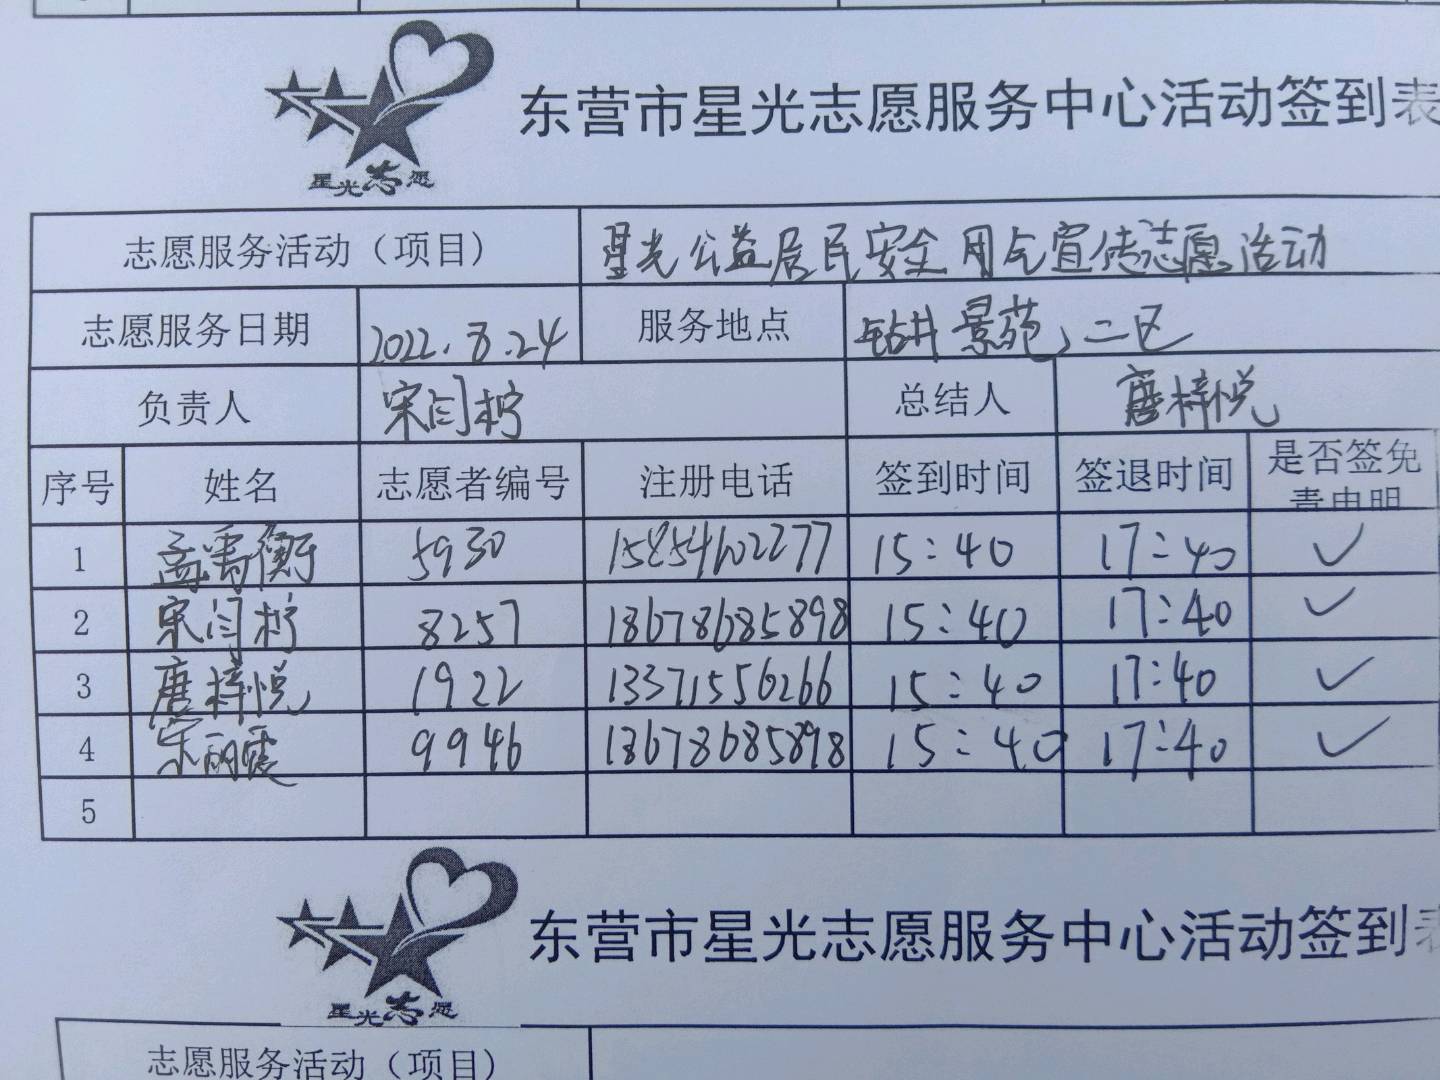 星光志愿
东营市星光志愿服务中心活动签到表
志愿服务活动（项目） 星光公益居民安全用气宣传志愿活动
志愿服务日期 2022.8.24 服务地点 钻井景苑、二区
负责人 宋闫柠 总结人 唐梓悦
序号 姓名 志愿者编号 注册电话 签到时间 签退时间 是否签免责申明
1 孟禹衡 5930 15854602277 15:40 17:40 ✓
2 宋闫柠 8257 18678685898 15:40 17:40 ✓
3 唐梓悦 1922 13371556266 15:40 17:40 ✓
4 宋丽霞 9946 18678685898 15:40 17:40 ✓
5
星光志愿
东营市星光志愿服务中心活动签到表
志愿服务活动（项目）